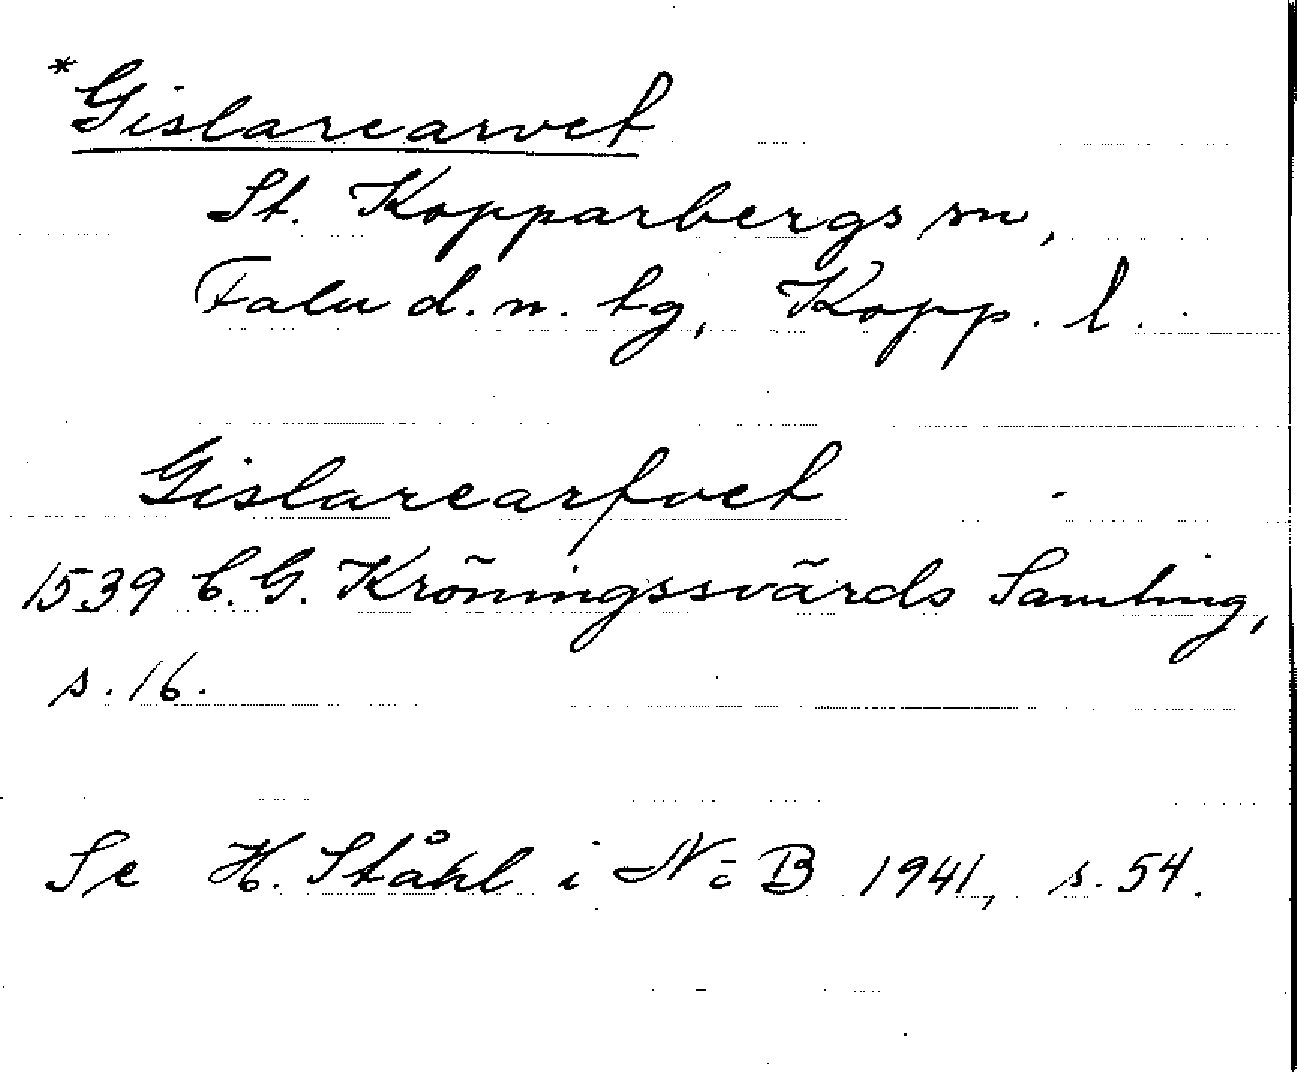 *Gislarearvet
St. Kopparbergs sn,
Falu d.n. tg, Kopp. l.
Gislarearfvet
1539 C.G. Kröningssvärds Samling,
s. 16.
Se H. Ståhl i NoB 1941, s. 54.